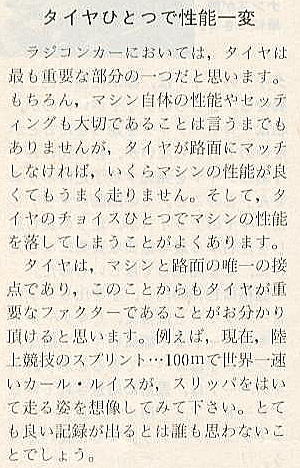 タイヤひとつで性能一変
ラジコンカーにおいては，タイヤは
最も重要な部分の一つだと思います。
もちろん，マシン自体の性能やセッテ
ィングも大切であることは言うまでも
ありませんが，タイヤが路面にマッチ
しなければ，いくらマシンの性能が良
くてもうまく走りません。そして，タ
イヤのチョイスひとつでマシンの性能
を落してしまうことがよくあります。
タイヤは，マシンと路面の唯一の接
点であり，このことからもタイヤが重
要なファクターであることがお分かり
頂けると思います。例えば，現在，陸
上競技のスプリント…100mで世界一速
いカール・ルイスが，スリッパをはい
て走る姿を想像してみて下さい。とて
も良い記録が出るとは誰も思わないこ
とでしょう。